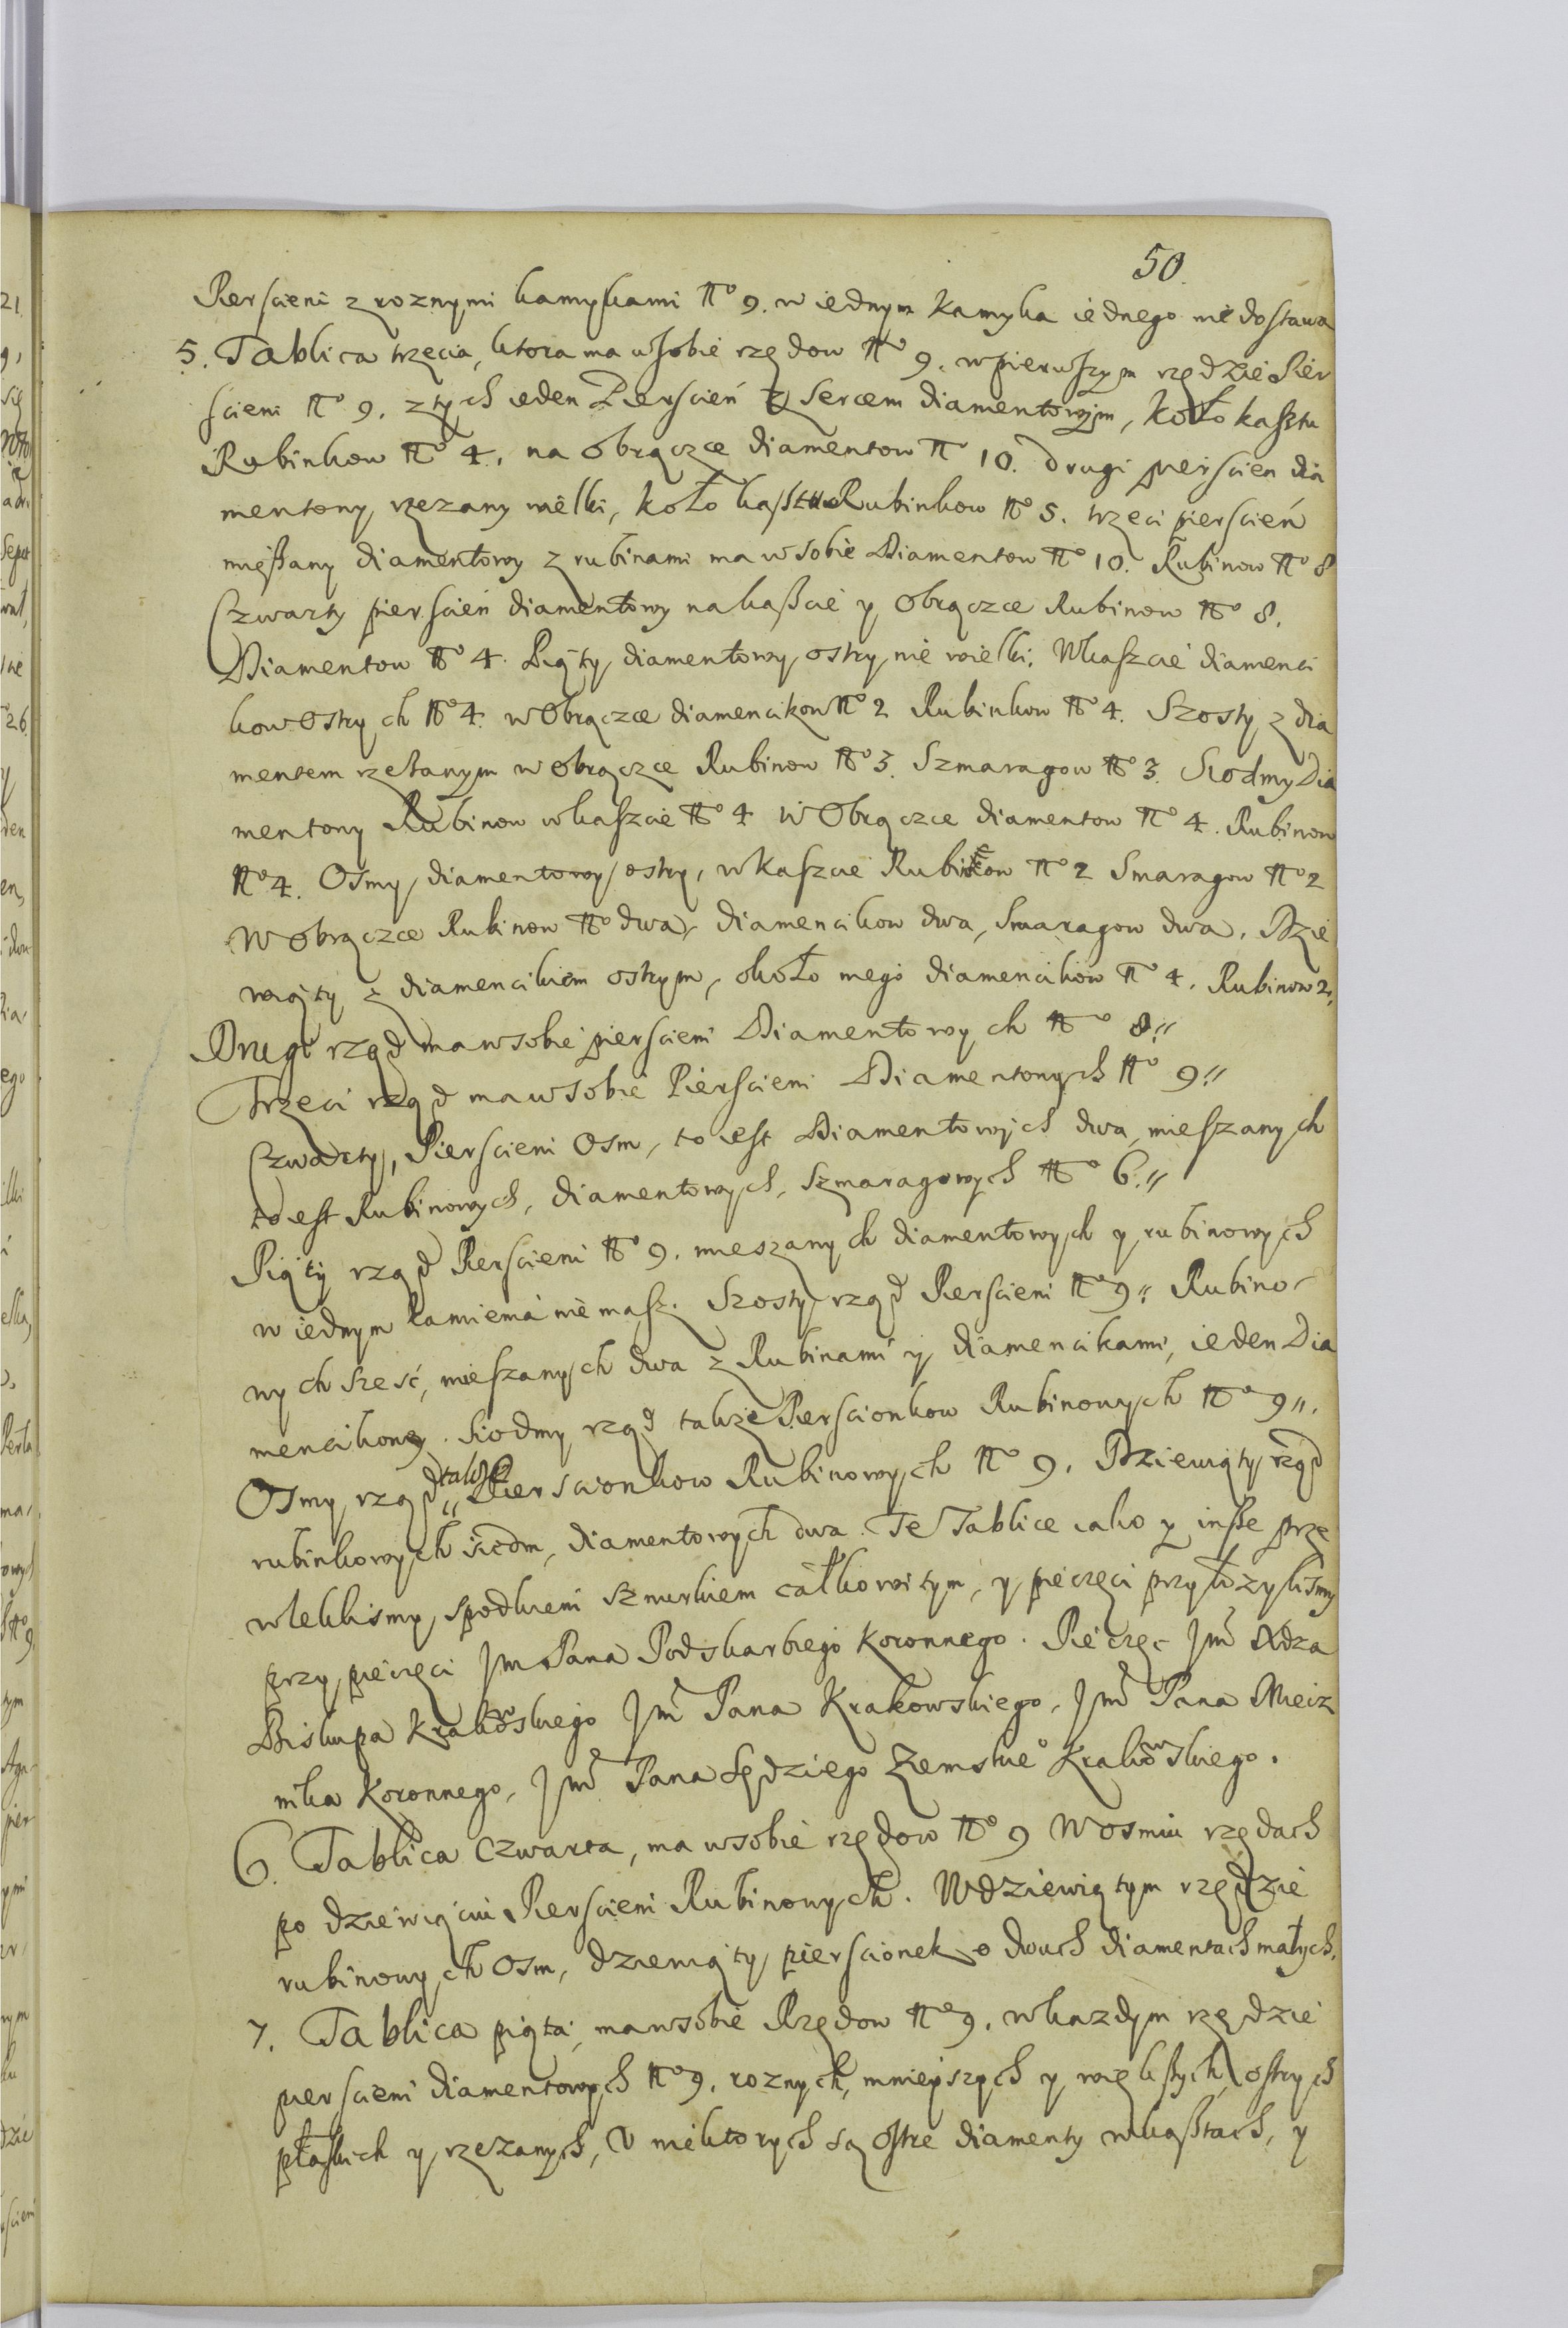 50.
Pierscieni z roznymi kamykami No 9. w iednym kamyka iednego nie dostawa
5. Tablica trzecia, ktora ma w sobie rzędow No 9. w pierwszym rzędzie Pier
scieni No 9. z tych ieden Pierscień z Sercem diamentowym, koło kasztu
Rubinkow No 4. na obrączce diamentow No 10. drugi pierscien dia
mentowy rzezany wielki, koło kasztu Rubinkow No 5. trzeci pierscień
mięszany diamentowy z rubinami ma w sobie Diamentow No 10. Rubinow No 8
Czwarty pierscień diamentowy na kaszcie y obrączce Rubinow No 8.
Diamentow No 4. Piąty diamentowy ostry nie wielki. W kaszcie diamenci
kow ostrych No 4. w obrączce diamencikow No 2 Rubinkow No 4. Szosty z dia
mentem rzezanym w obrączce Rubinow No 3. Szmaragow No 3. Siodmy Dia
mentowy Rubinow w kaszcie No 4 w Obrączce diamentow No 4. Rubinow
No 4. Osmy diamentowy ostry, w kaszcie Rubinow No 2 Smaragow No 2
W obrączce Rubinow No dwa, diamencikow dwa, Smaragow dwa. Dzie
wiąty z diamencikiem ostrym, około niego diamencikow No 4. Rubinow 2.
Drugi rząd ma w sobie pierscieni Diamentowych No 8.
Trzeci rząd ma w sobie Pierscieni Diamentowych No 9.
Czwarty, Pierscieni Osm, to iest Diamentowych dwa, mieszanych
to iest Rubinowych, diamentowych, Szmaragowych No 6.
Piąty rząd Pierscieni No 9. mieszanych diamentowych y rubinowych
w iednym kamienia nie masz. Szosty rząd Pierscieni No 9. Rubino-
wych sześć, mieszanych dwa z Rubinami y diamencikami, ieden Dia
mencikowy. Siodmy rząd także Pierscionkow Rubinowych No 9.
Osmy rząd także Pierscionkow Rubinowych No 9. Dziewiąty rząd
rubinkowych siedm, diamentowych dwa. Te Tablice iako y insze prze
wlekliśmy spodkiem sznurkiem całkowitym, y pieczęci przyłożyliśmy
przy pieczęci Jm Pana Podskarbiego Koronnego. Pieczęc Jmć Xdza
Biskupa Krakowskiego Jmć Pana Krakowskiego, Jmć Pana Miecz
nika Koronnego, Jmć Pana Sędziego Ziemskieo Krakowskiego.
6. Tablica Czwarta, ma w sobie rzędow No 9 W osmiu rzędach
po dziewiąciu Pierscieni Rubinowych. W dziewiątym rzędzie
rubinowych osm, dziewiąty pierscionek o dwuch diamentach małych.
7. Tablica piąta, ma w sobie Rzędow No 9. w kazdym rzędzie
pierscieni diamentowych No 9. roznych, mnieyszych y większych, ostrych
płaskich y rzezanych, U niektorych są ostre diamenty w kasztach, y